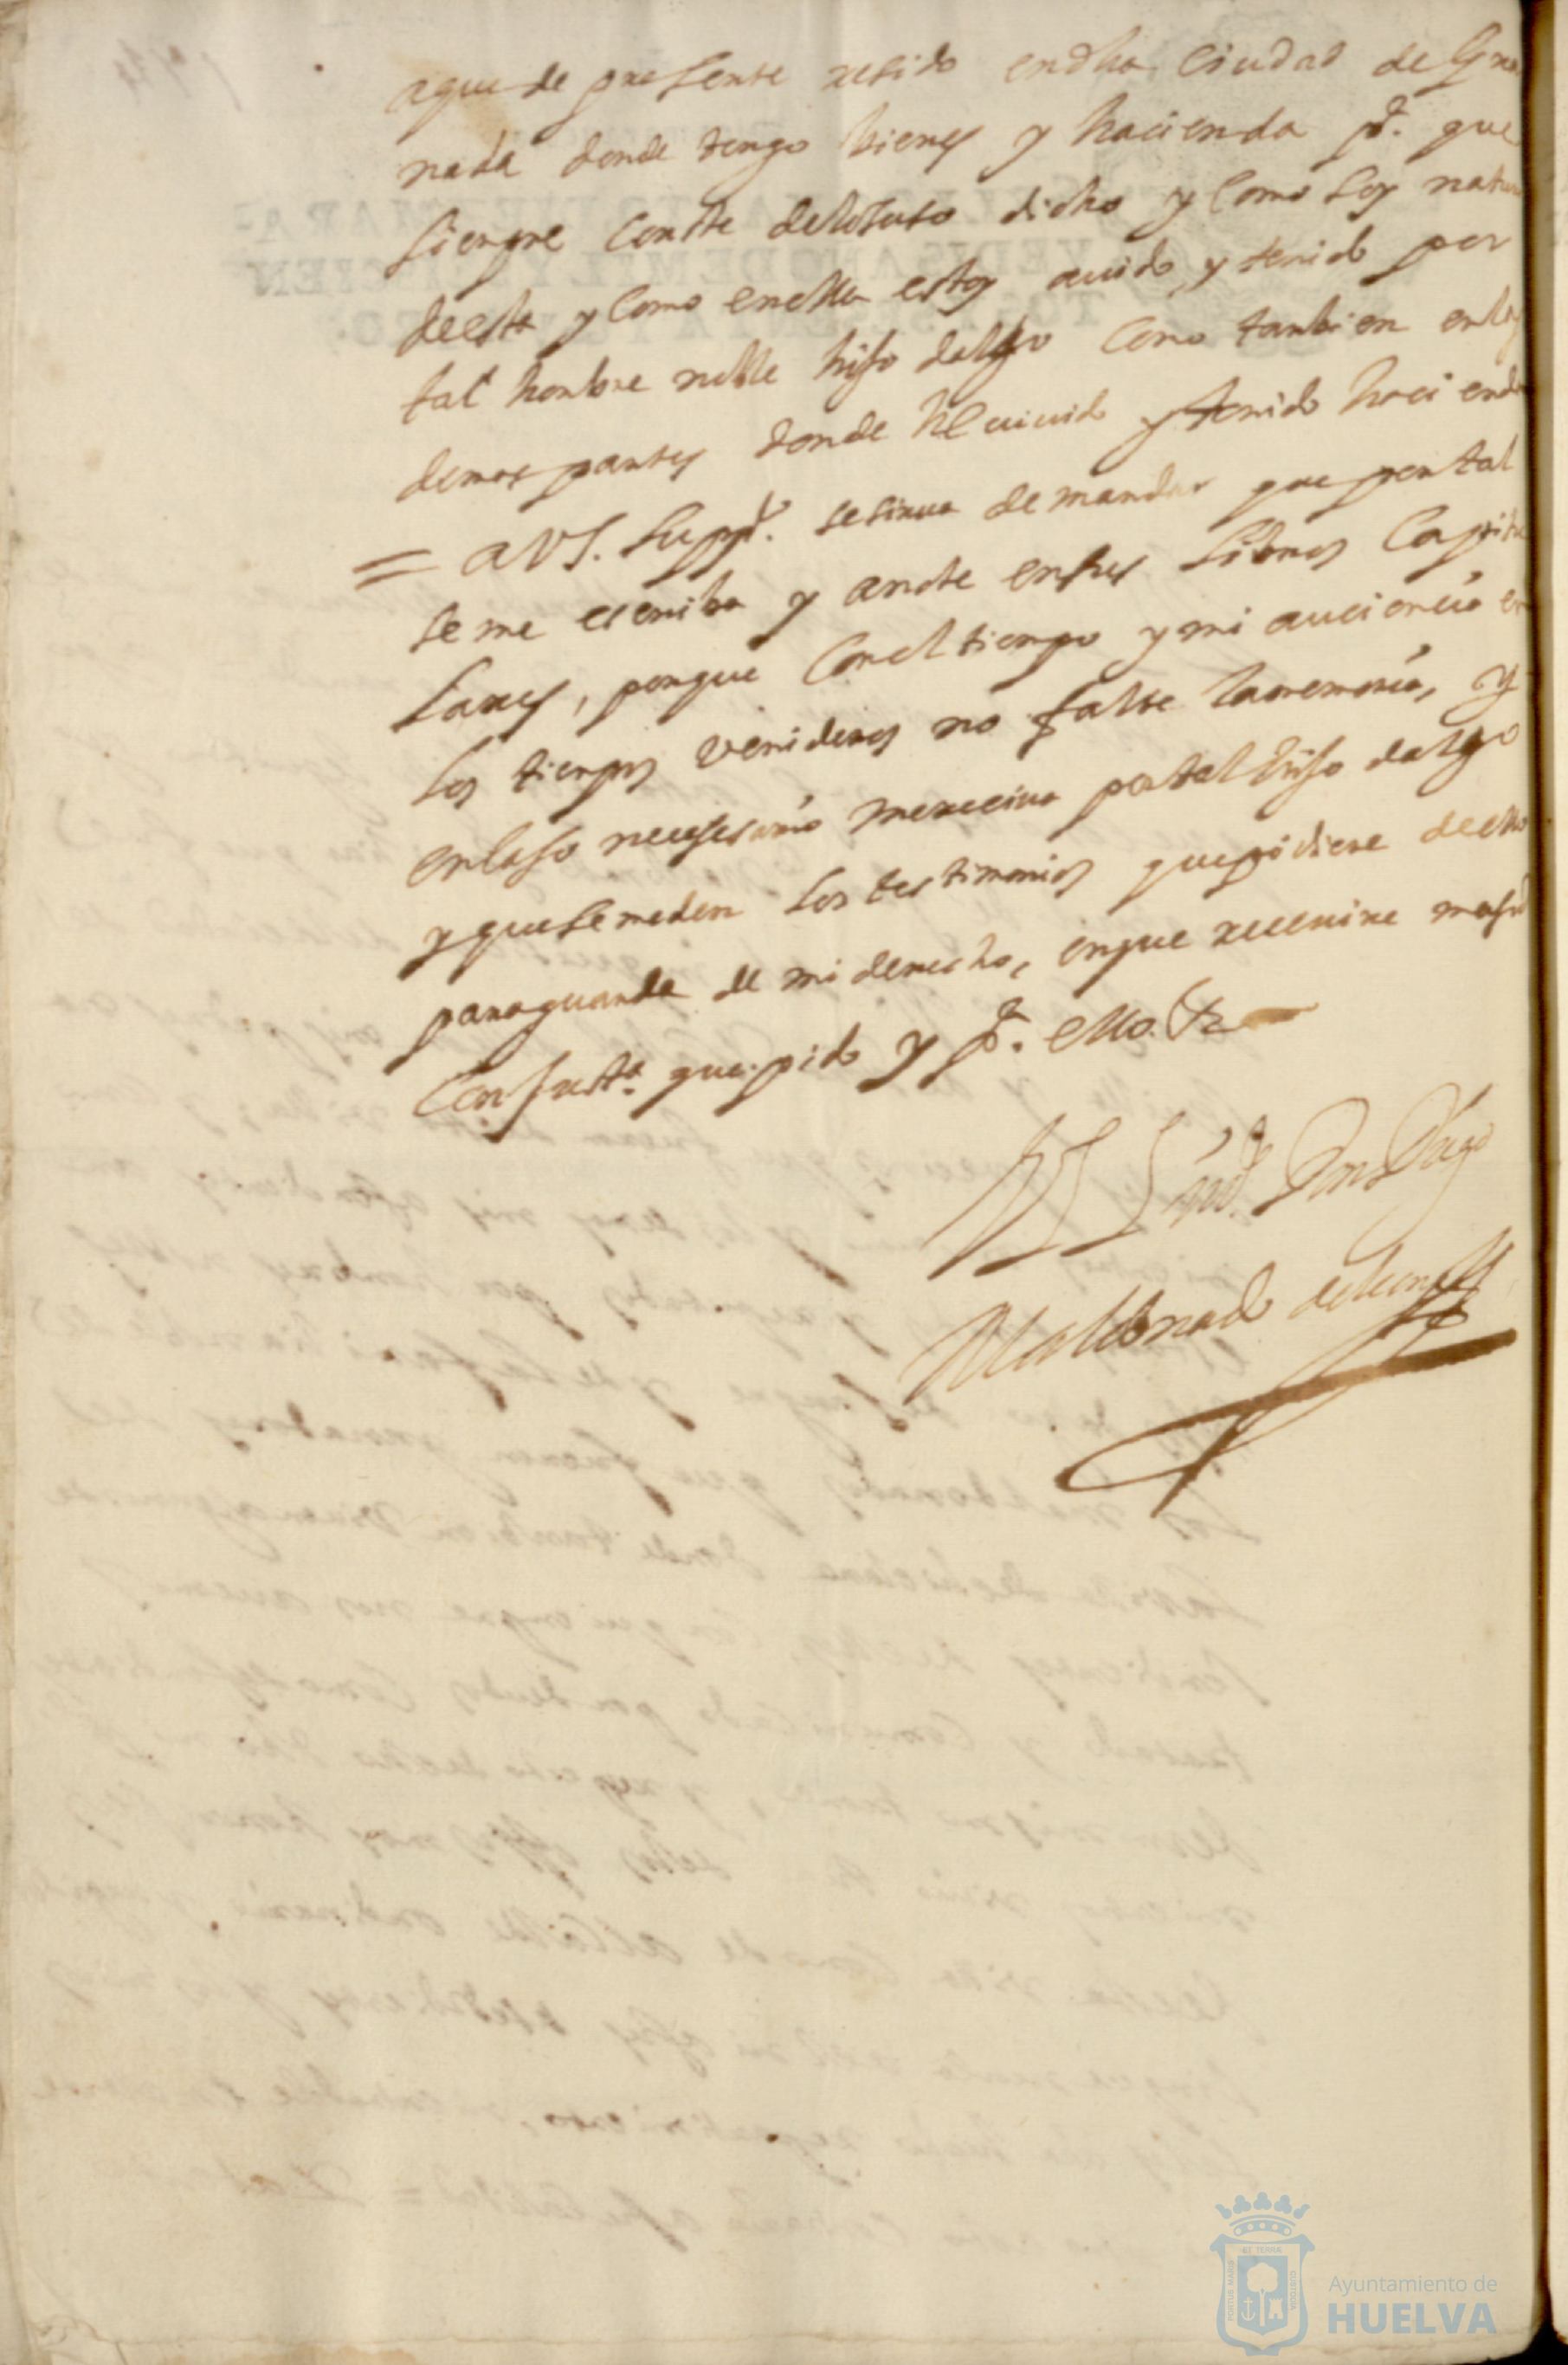 aque de presente resido en dha Ciudad de Gra
nada donde tengo bienes y hacienda pa. que
siempre conste delosuso dicho y como soy natu
deesta y como enella estoy auido y tenido por
tal honbre noble hijo dalgo como tanbien enlas
demas partes donde he uiuido y tenido haciend
= a VS. suppco. se sirua de mandar que por tal
se me escriba y anote ensus libros Capitu
lares, porque conel tienpo y mi auciencia en
los tienpos venideros no falte lamemoria, y
encaso necesario merecina por tal hijo dalgo
y que se meden los testimonios que pidiere deello
paraguarda de mi derecho, enque receuire mrd
con justa. que pido y pa. ello. &
Don Diego
Maldonado deleon
Ayuntamiento de
HUELVA